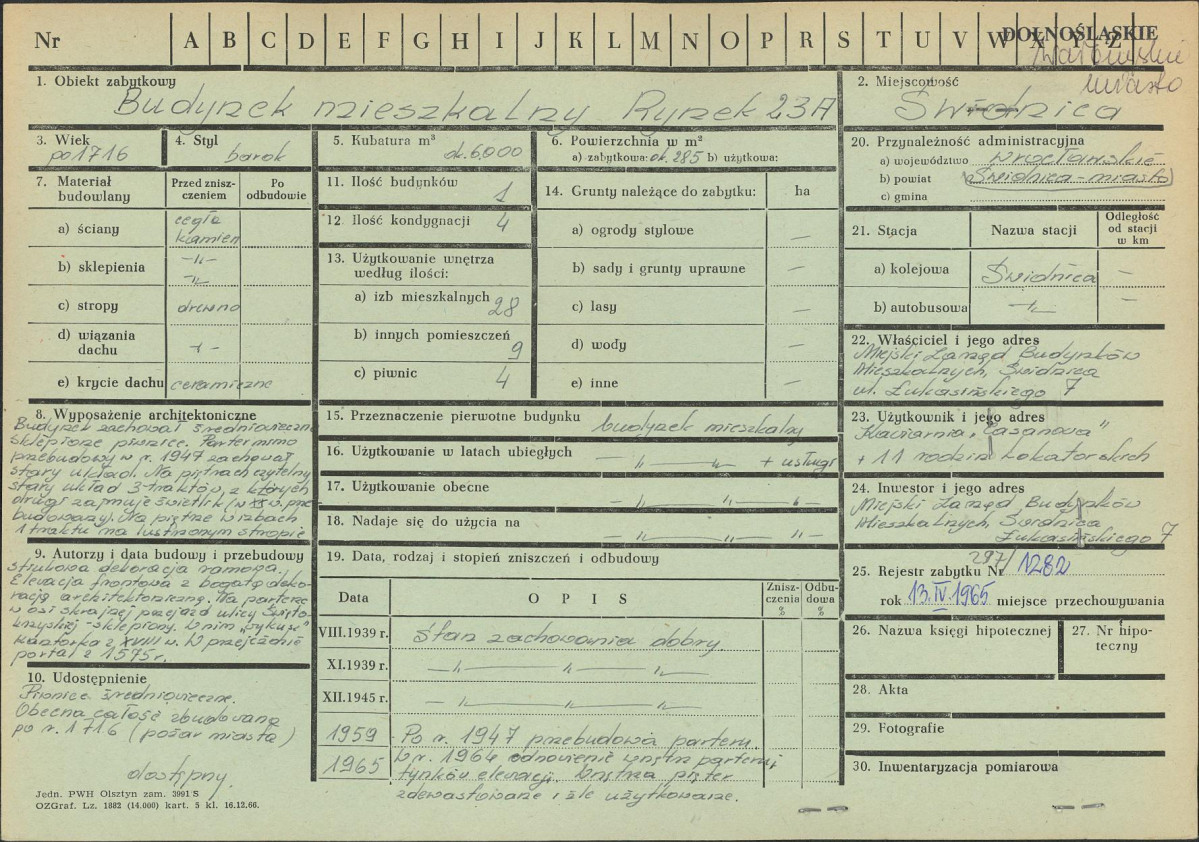 Nr A B C D E F G H I J K L M N O P R S T U V W X Y Z
DOLNOŚLĄSKIE
miasto
1. Obiekt zabytkowy
Budynek mieszkalny Rynek 23A
2. Miejscowość
Świdnica
3. Wiek
po 1716
4. Styl
barok
5. Kubatura m³
ok. 6.000
6. Powierzchnia w m²
a) zabytkowa: ok. 285 b) użytkowa:
7. Materiał budowlany
Przed zniszczeniem
Po odbudowie
a) ściany
cegła
kamień
b) sklepienia
-"-
-"-
c) stropy
drewno
d) wiązania dachu
-"-
e) krycie dachu
ceramiczne
11. Ilość budynków
1
12. Ilość kondygnacji
4
13. Użytkowanie wnętrza według ilości:
a) izb mieszkalnych
28
b) innych pomieszczeń
9
c) piwnic
4
14. Grunty należące do zabytku:
ha
a) ogrody stylowe –
b) sady i grunty uprawne –
c) lasy –
d) wody –
e) inne –
20. Przynależność administracyjna
a) województwo wrocławskie
b) powiat (Świdnica-miasto)
c) gmina
21. Stacja
Nazwa stacji
Odległość od stacji w km
a) kolejowa Świdnica –
b) autobusowa -"- –
22. Właściciel i jego adres
Miejski Zarząd Budynków
Mieszkalnych, Świdnica
ul. Łukasińskiego 7
8. Wyposażenie architektoniczne
Budynek zachował średniowieczne
sklepione piwnice. Parter mimo
przebudowy w r. 1947 zachował
stary układ. Na piętrach czytelny
stary układ 3-traktów, z których
drugi zajmuje świetlik (w XX w. prze-
budowany). Na piętrze w izbach
1 traktu na lustrzanym stropie
9. Autorzy i data budowy i przebudowy
stiukowa dekoracja ramowa.
Elewacja frontowa z bogatą deko-
racją architektoniczną. Na parterze
w osi skrajnej przejazd ulicy Święto-
krzyskiej - sklepiony. W nim "sykusz"
kantorka z XVIII w. W przejeździe
portal z 1575 r.
10. Udostępnienie
Piwnice średniowieczne.
Obecna całość zbudowana
po r. 1716 (pożar miasta)
dostępny
15. Przeznaczenie pierwotne budynku
budynek mieszkalny
16. Użytkowanie w latach ubiegłych
-"- -"- + usługi
17. Użytkowanie obecne
-"- -"- -"-
18. Nadaje się do użycia na
-"- -"- -"-
19. Data, rodzaj i stopień zniszczeń i odbudowy
Data
OPIS
Zniszczenia %
Odbudowa %
VIII.1939 r. Stan zachowania dobry
XI.1939 r. -"- -"- -"-
XII.1945 r. -"- -"- -"-
1959 Po r. 1947 przebudowa parteru
1965 W r. 1964 odnowienie wnętrz parteru i
tynków elewacji. Wnętrza pięter
zdewastowane i źle użytkowane.
23. Użytkownik i jego adres
Kawiarnia "Casanova"
+ 11 rodzin lokatorskich
24. Inwestor i jego adres
Miejski Zarząd Budynków
Mieszkalnych, Świdnica
Łukasińskiego 7
25. Rejestr zabytku Nr 297/1282
rok 13.IV.1965 miejsce przechowywania
26. Nazwa księgi hipotecznej
27. Nr hipoteczny
28. Akta
29. Fotografie
30. Inwentaryzacja pomiarowa
Jedn. PWH Olsztyn zam. 3991 S
OZGraf. Lz. 1882 (14.000) kart. 5 kl. 16.12.66.